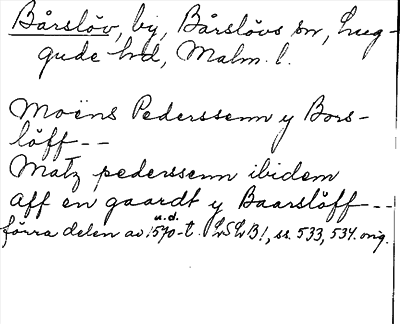 Bårslöv, by, Bårslövs sn, Lug-
gude hd, Malm. l.
Moëns Pederssenn y Bors-
löff--
Matz pederssenn ibidem
aff en gaardt y Baarslöff--
u.d.
förra delen av 1570-t. LSLB1, ss. 533, 534. orig.